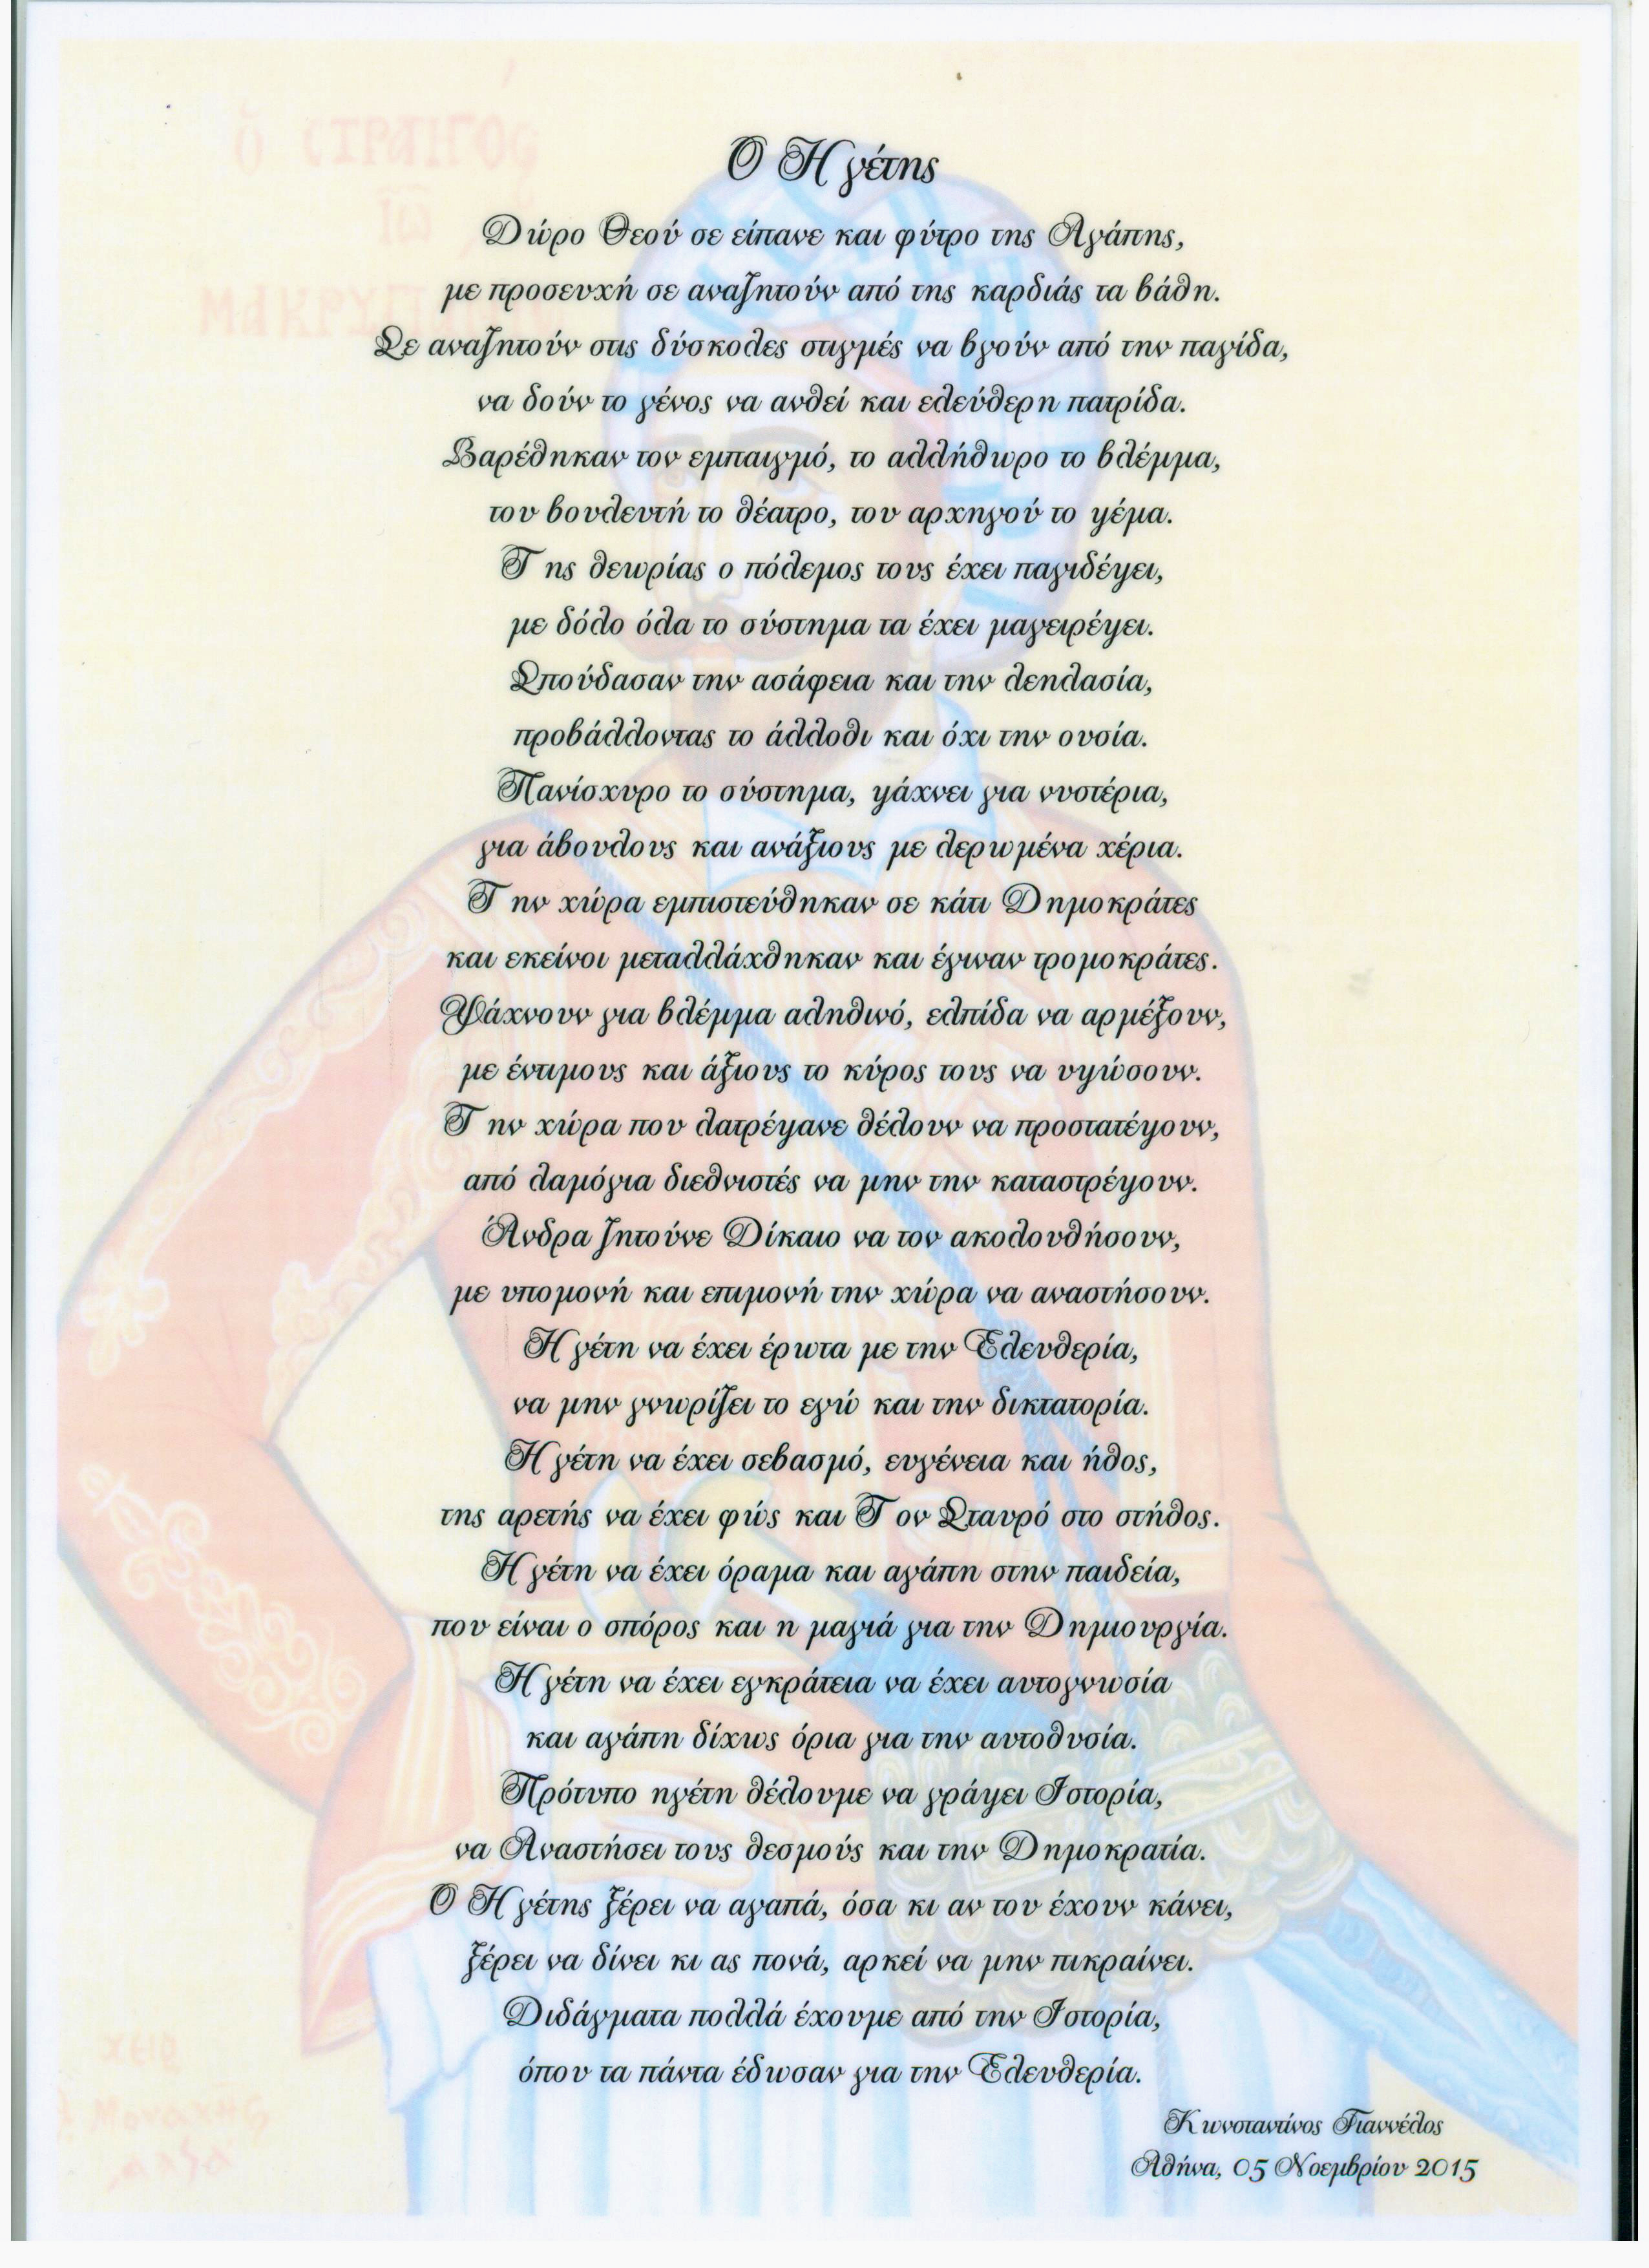 ὁ ΣΤΡΑΤΗΓΟΣ
ΙΩ
ΜΑΚΡΥΓ
Ο Ηγέτης
Δώρο Θεού σε είπανε και φύτρο της Αγάπης,
με προσευχή σε αναζητούν από της καρδιάς τα βάθη.
Σε αναζητούν στις δύσκολες στιγμές να βγούν από την παγίδα,
να δούν το γένος να ανθεί και ελεύθερη πατρίδα.
Βαρέθηκαν τον εμπαιγμό, το αλλήθωρο το βλέμμα,
του βουλευτή το θέατρο, του αρχηγού το ψέμα.
Της θεωρίας ο πόλεμος τους έχει παγιδέψει,
με δόλο όλα το σύστημα τα έχει μαγειρέψει.
Σπούδασαν την ασάφεια και την λεηλασία,
προβάλλοντας το άλλοθι και όχι την ουσία.
Πανίσχυρο το σύστημα, ψάχνει για νυστέρια,
για άβουλους και ανάξιους με λερωμένα χέρια.
Την χώρα εμπιστεύθηκαν σε κάτι Δημοκράτες
και εκείνοι μεταλλάχθηκαν και έγιναν τρομοκράτες.
Ψάχνουν για βλέμμα αληθινό, ελπίδα να αρμέξουν,
με έντιμους και άξιους το κύρος τους να υψώσουν.
Την χώρα που λατρέψανε θέλουν να προστατέψουν,
από λαμόγια διεθνιστές να μην την καταστρέψουν.
Άνδρα ζητούνε Δίκαιο να τον ακολουθήσουν,
με υπομονή και επιμονή την χώρα να αναστήσουν.
Ηγέτη να έχει έρωτα με την Ελευθερία,
να μην γνωρίζει το εγώ και την δικτατορία.
Ηγέτη να έχει σεβασμό, ευγένεια και ήθος,
της αρετής να έχει φώς και Τον Σταυρό στο στήθος.
Ηγέτη να έχει όραμα και αγάπη στην παιδεία,
που είναι ο σπόρος και η μαγιά για την Δημιουργία.
Ηγέτη να έχει εγκράτεια να έχει αυτογνωσία
και αγάπη δίχως όρια για την αυτοθυσία.
Πρότυπο ηγέτη θέλουμε να γράψει Ιστορία,
να Αναστήσει τους θεσμούς και την Δημοκρατία.
Ο Ηγέτης ξέρει να αγαπά, όσα κι αν του έχουν κάνει,
ξέρει να δίνει κι ας πονά, αρκεί να μην πικραίνει.
Διδάγματα πολλά έχουμε από την Ιστορία,
όπου τα πάντα έδωσαν για την Ελευθερία.
Κωνσταντίνος Γιαννέλος
Αθήνα, 05 Νοεμβρίου 2015
χειρ
Μοναχης